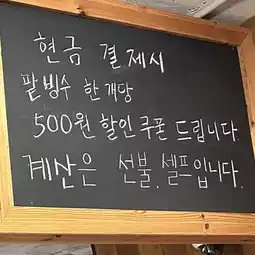 현금 결제시
팥빙수 한개당
500원 할인 쿠폰 드립니다.
계산은 선불, 셀프입니다.